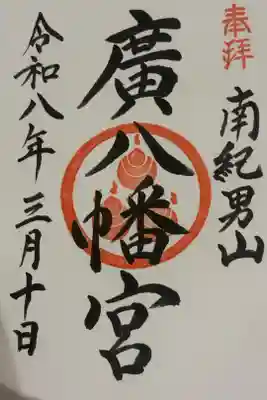 奉拝
南紀男山
廣八幡宮
令和八年三月十日